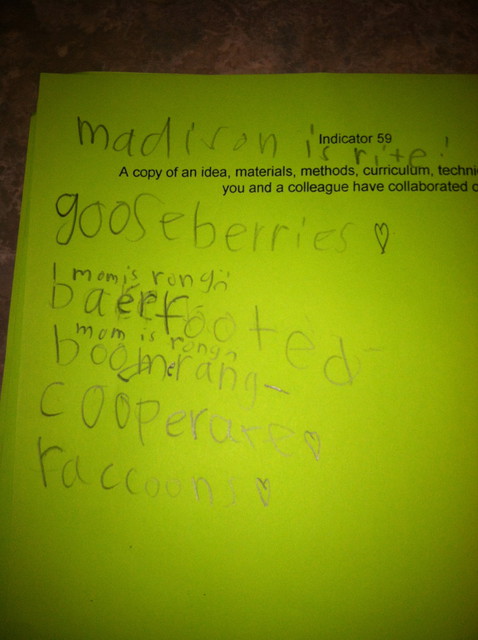 madison is rite!
Indicator 59
A copy of an idea, materials, methods, curriculum, techni
you and a colleague have collaborated o
gooseberries
1 mom is rong
baerfooted
mom is rong
boomerang
cooperate
raccoons